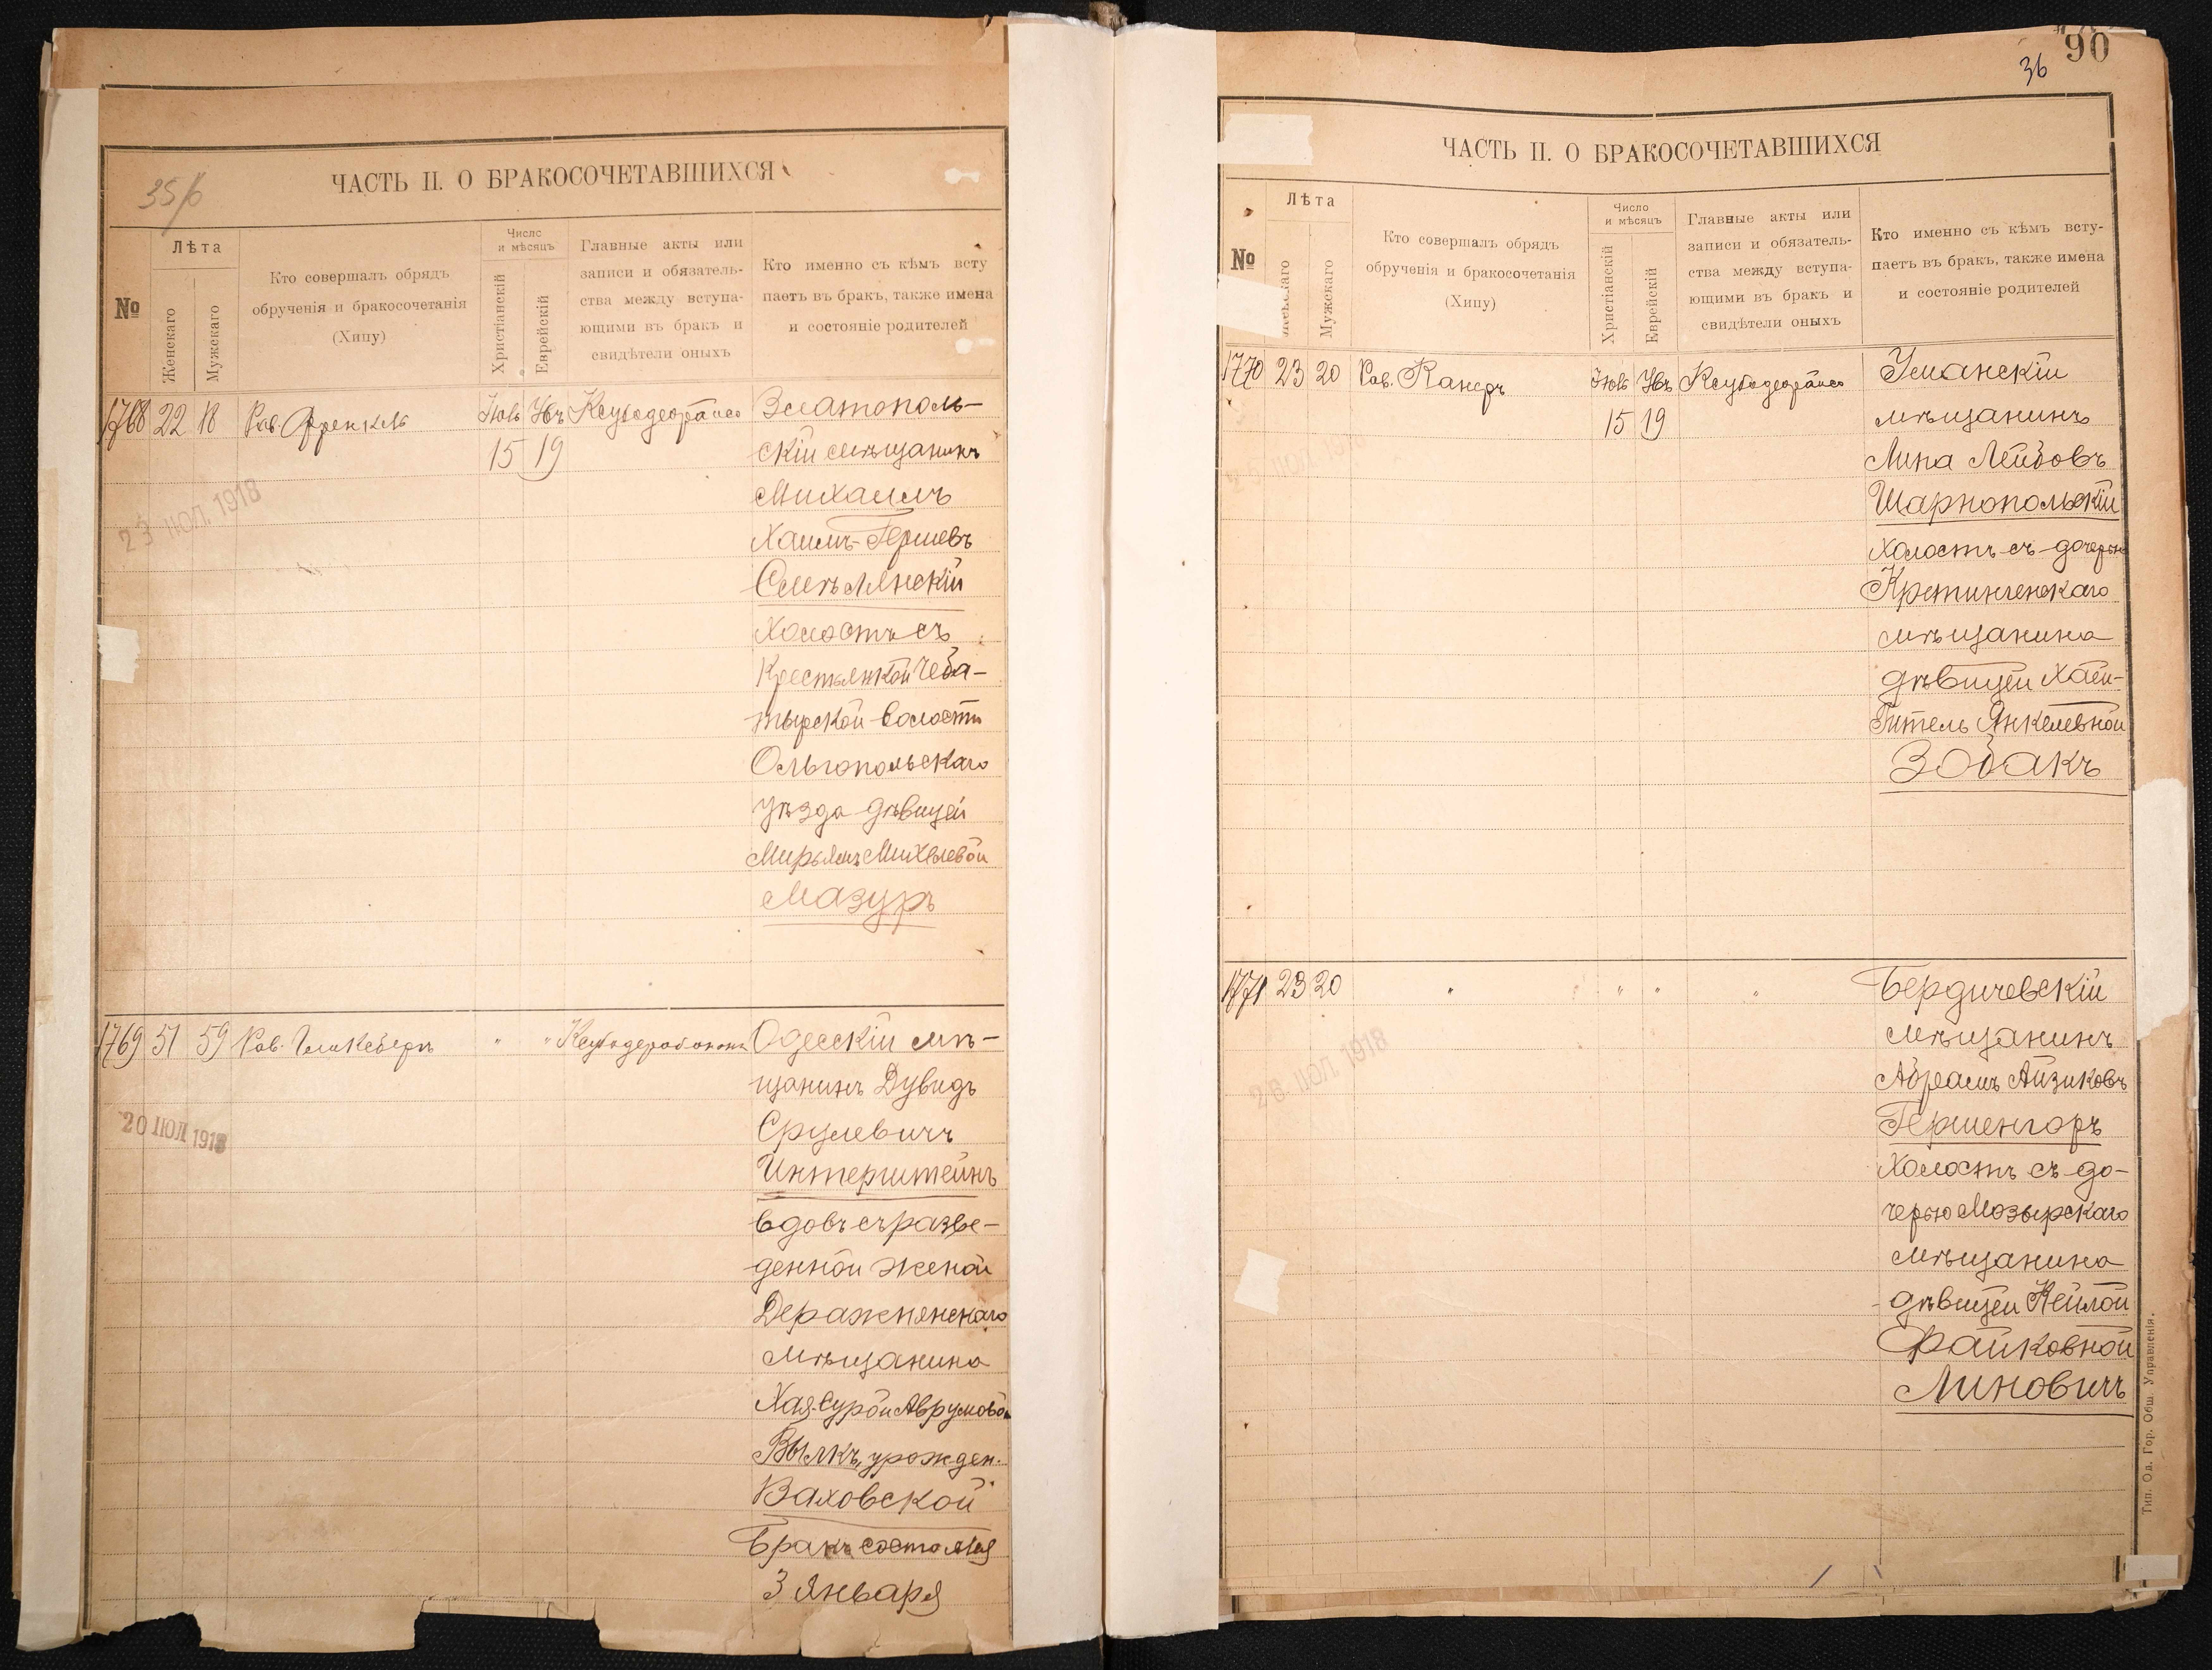 35/б
ЧАСТЬ II. О БРАКОСОЧЕТАВШИХСЯ
№
Лѣта
Женскаго
Мужскаго
Кто совершалъ обрядъ
обрученія и бракосочетанія
(Хипу)
Число
и мѣсяцъ
Христіанскій
Еврейскій
Главные акты или
записи и обязатель-
ства между вступа-
ющими въ бракъ и
свидѣтели оныхъ
Кто именно съ кѣмъ всту
паетъ въ бракъ, также имена
и состояніе родителей
1768 22 18 Рав. Френкель
15 19
23 ІЮЛ. 1918
Златополь-
скій мѣщанинъ
Михаилъ
Хаимъ-Гершевъ
Смѣлянскій
холостъ съ
крестьянкой Чеба-
тырской волости
Ольгопольскаго
уѣзда дѣвицей
Мирьямъ Михелевой
Мазуръ
1769 51 59 Рав. Гликсбергъ " "
20 ІЮЛ 1918
Одесскій мѣ-
щанинъ Дувидъ
Срулевичъ
Интерштейнъ
вдовъ съ разве-
денной женой
Деражнянскаго
мѣщанина
Хая-Сурой Аврумовой
Вылкъ, урожден.
Ваховской
Бракъ состоялся
3 Января
90
36
ЧАСТЬ II. О БРАКОСОЧЕТАВШИХСЯ
№
Лѣта
Мужскаго
Кто совершалъ обрядъ
обрученія и бракосочетанія
(Хипу)
Число
и мѣсяцъ
Христіанскій
Еврейскій
Главные акты или
записи и обязатель-
ства между вступа-
ющими въ бракъ и
свидѣтели оныхъ
Кто именно съ кѣмъ всту-
паетъ въ бракъ, также имена
и состояніе родителей
1770 23 20 Рав. Канеръ
15 19
Уманскій
мѣщанинъ
Липа Лейбовъ
Шарнопольскій
холостъ съ дочерью
Кретингенскаго
мѣщанина
дѣвицей Хаей-
Гитель Янкелевной
Зобакъ
1771 23 20 " " " "
26 ІЮЛ 1918
Бердичевскій
мѣщанинъ
Абрамъ Айзиковъ
Гершенгоръ
холостъ съ до-
черью Мозырскаго
мѣщанина
дѣвицей Кейлой
Файковной
Линовичъ
Тип. Од. Гор. Общ. Управленія.